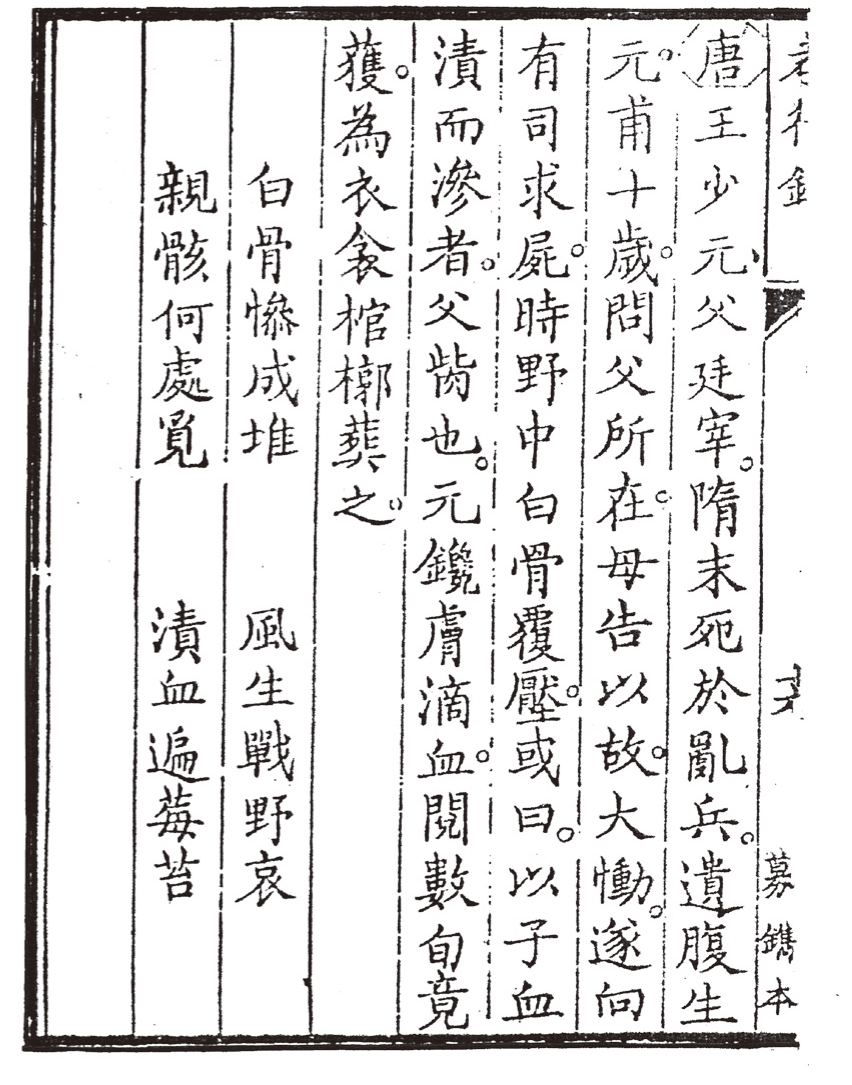 募鐫本
唐王少元父廷宰。隋末死於亂兵。遺腹生
元。甫十歲。問父所在。母告以故。大慟。遂向
有司求屍。時野中白骨覆壓。或曰。以子血
漬而滲者。父胔也。元鑱膚滴血。閱數旬竟
獲。為衣衾棺槨葬之。
白骨慘成堆　風生戰野哀
親骸何處覓　漬血遍莓苔